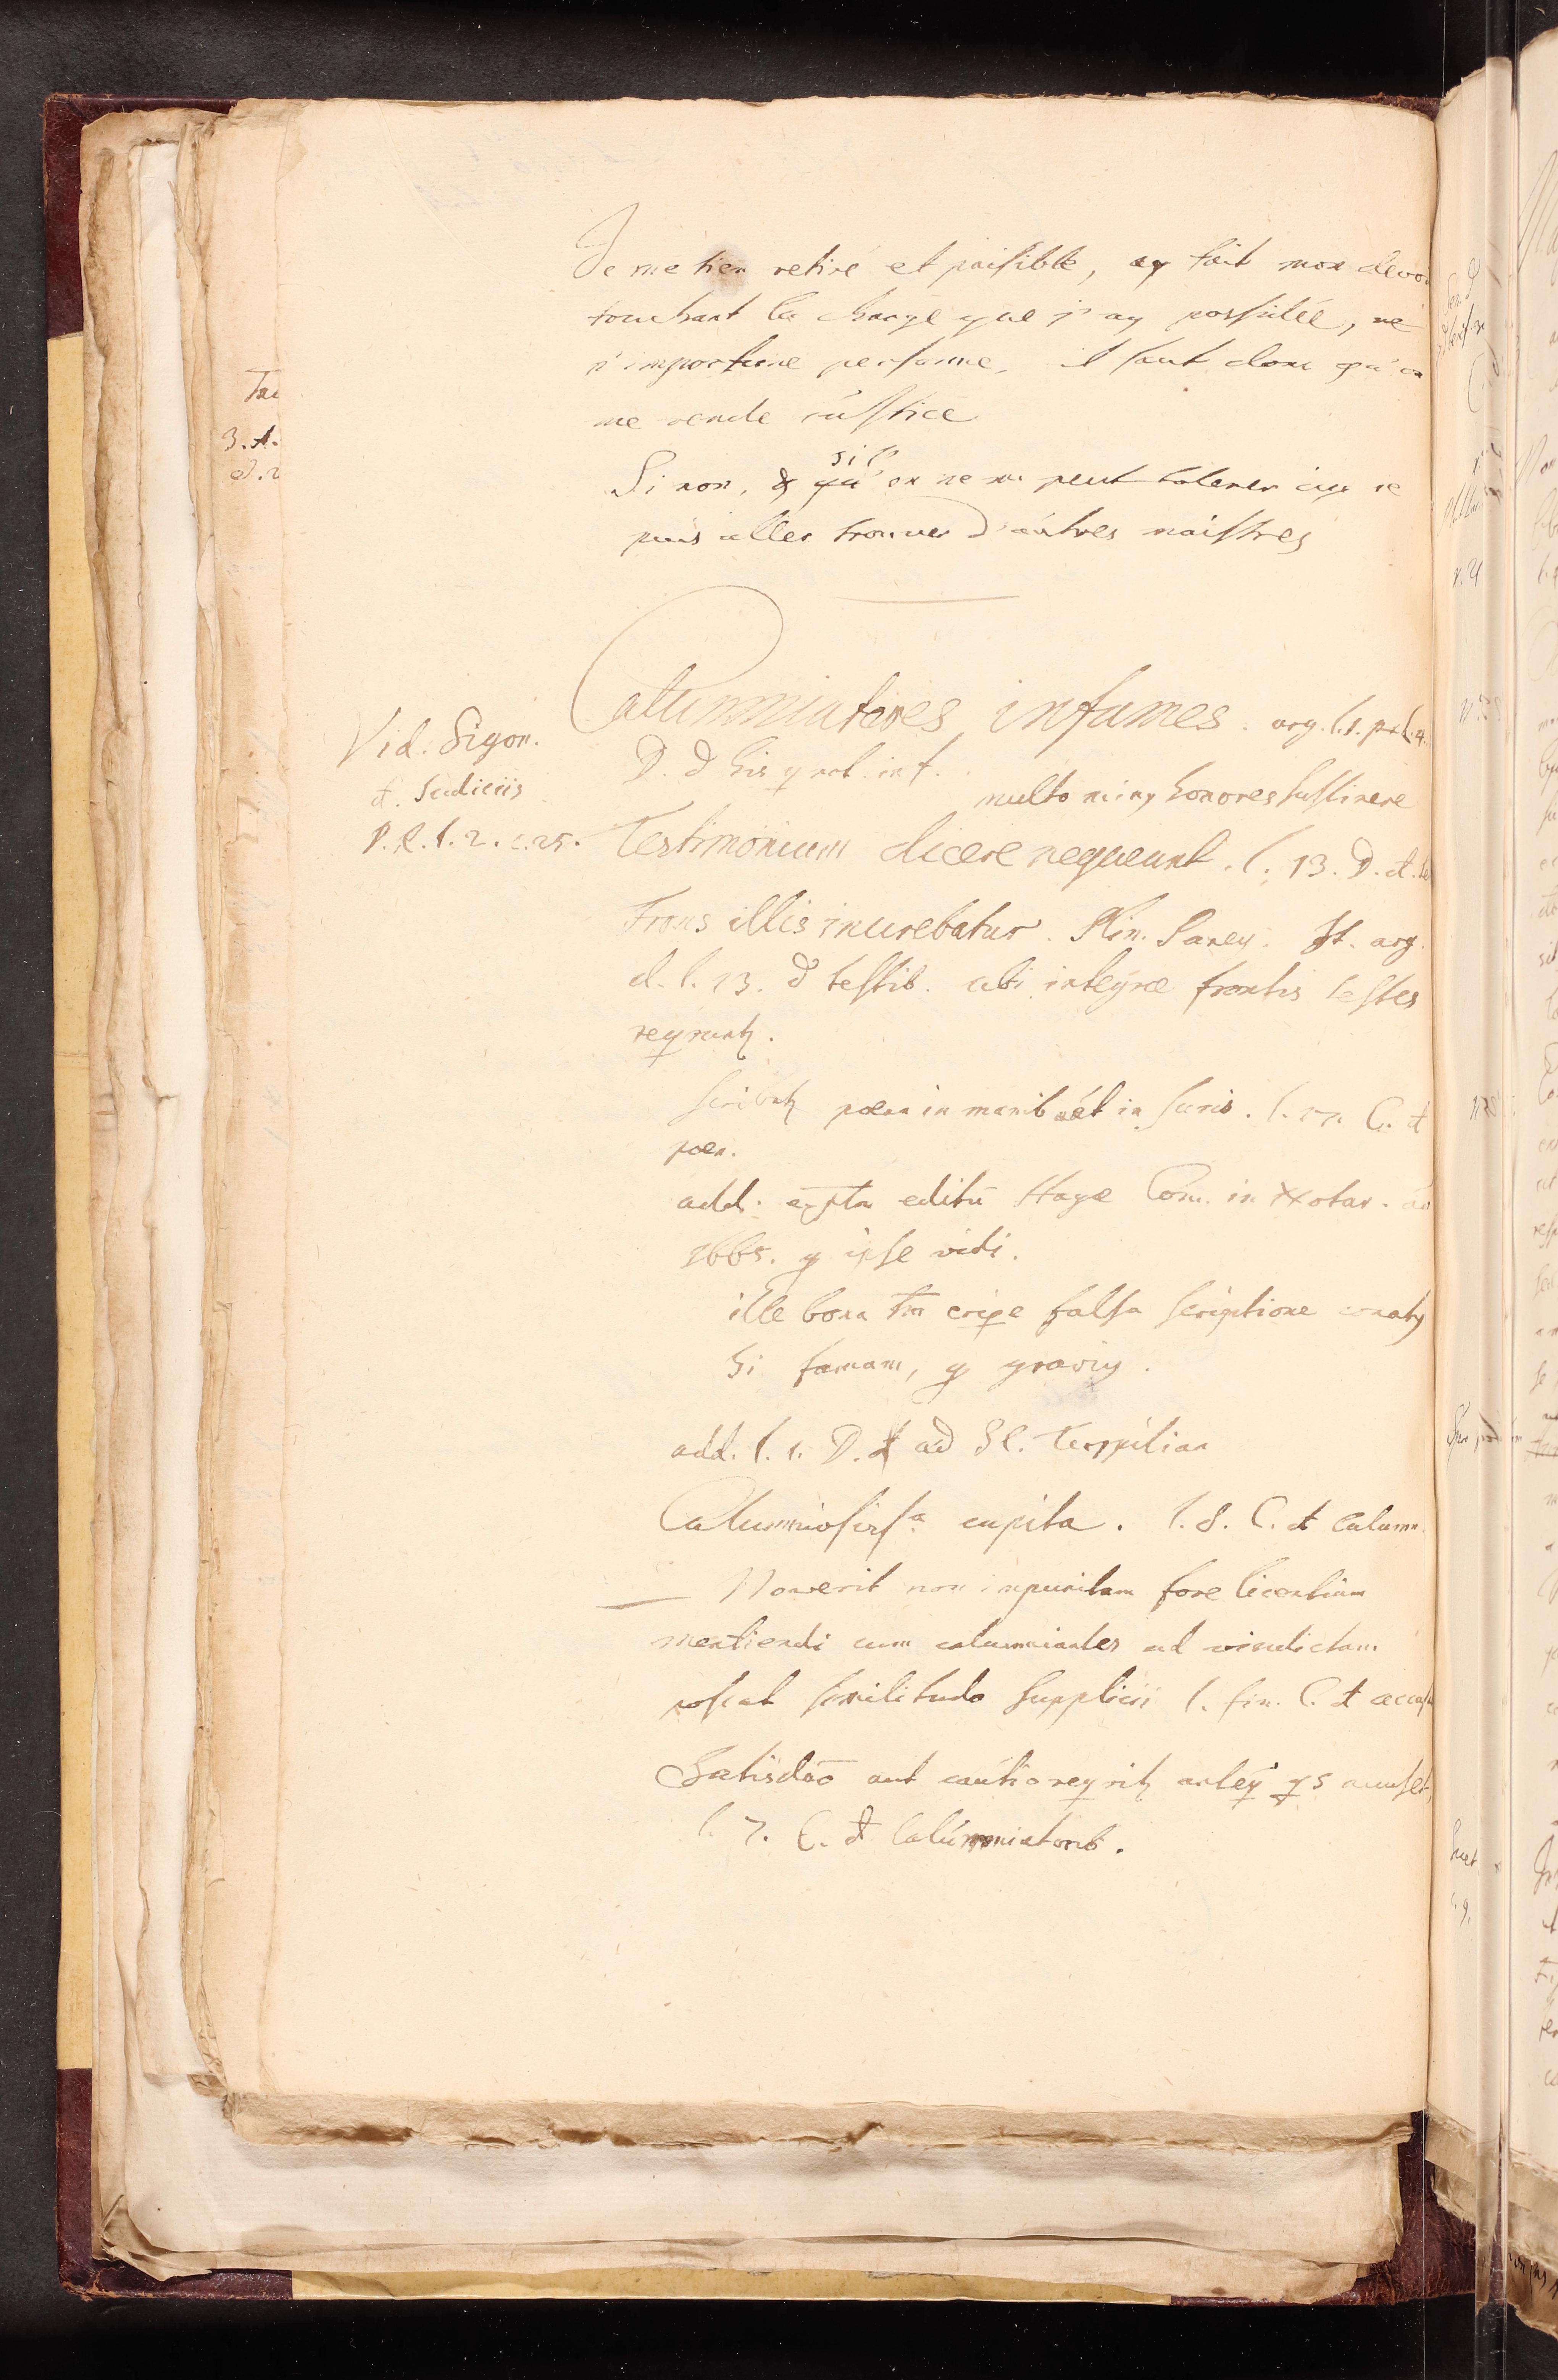 Je me tien retiré et paisible, ay fait mon devo
touchant la charge que j'ay possedée, ne
n'importune personne, il faut donc qu'on
me rende iustice
Si non, & qu' sil' on ne me peut tolerer icy je
puis aller trouver d'autres maistres
Calumniatores infames. arg. l. 1. pr. l. 4.
D. d his q not. inf.
multo minq honores sustinere
Vid. Sigon.
d. Iudiciis
P. R. l. 2. c. 25.
Testimonium dicere nequeunt. l. 13. D. d. te
Frons illis inurebatur. Plin. Paneg. It. arg.
d. l. 13. d testib. ubi integræ frontis testes
reqrunt.
scribitz poena in manib. aút in furio. l. C. d
poen.
add. editū Hagæ Com. in Notar. ao
1665. q ipse vidi.
ille bona tm eripe falsa scriptione conatq
hi famam, q graviq.
add. l. 1. D. ad SC. Turpilian
Calumniosissa. capita. l. 8. C. d Calumn.
Noverit non impunitam fore licentiam
mentiendi cum calumniantes ad vindictam
poscat similitudo supplicii l. fin. C. d accus
Satisdāo aut cautio reqritz anteq qs accuset,
l. 7. C. d Calúmniatorib.